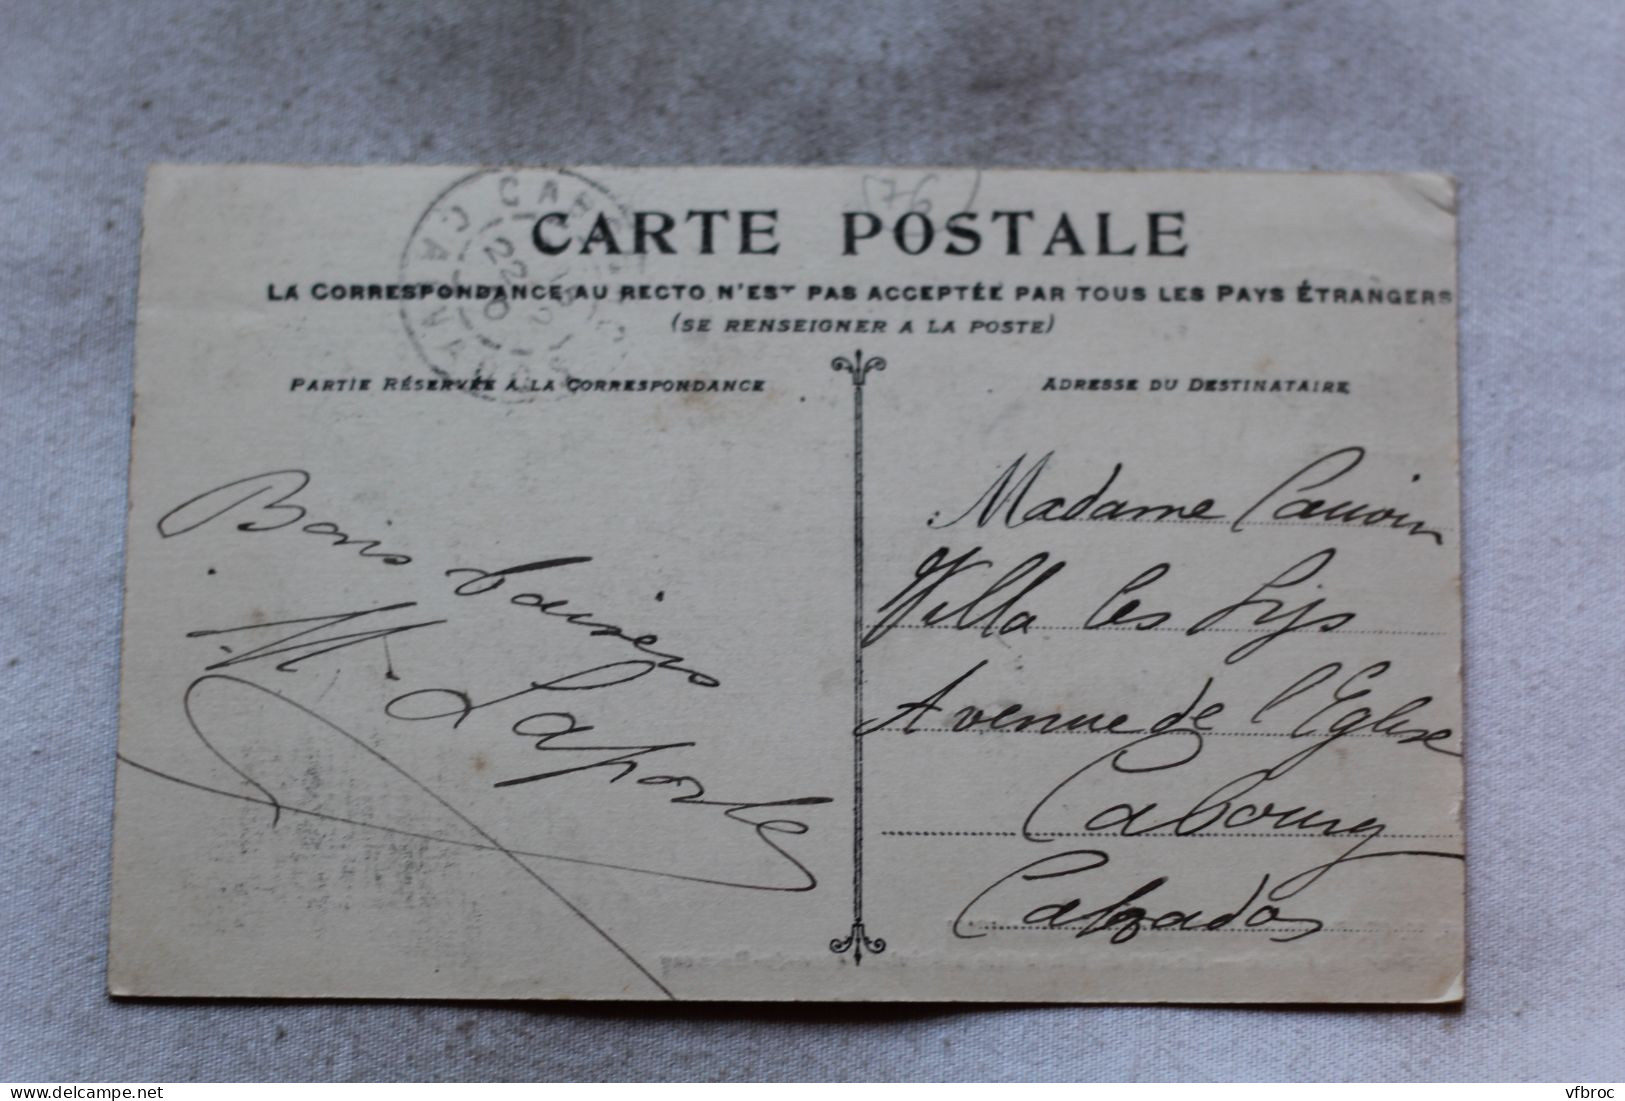 CARTE POSTALE
LA CORRESPONDANCE AU RECTO N'EST PAS ACCEPTÉE PAR TOUS LES PAYS ÉTRANGERS
(SE RENSEIGNER A LA POSTE)
PARTIE RÉSERVÉE A LA CORRESPONDANCE
Bons baisers
M. Laporte
ADRESSE DU DESTINATAIRE
Madame
Villa les Lys
Avenue de l'Eglise
Cabourg
Calvados
delcampe.net
vfbroc